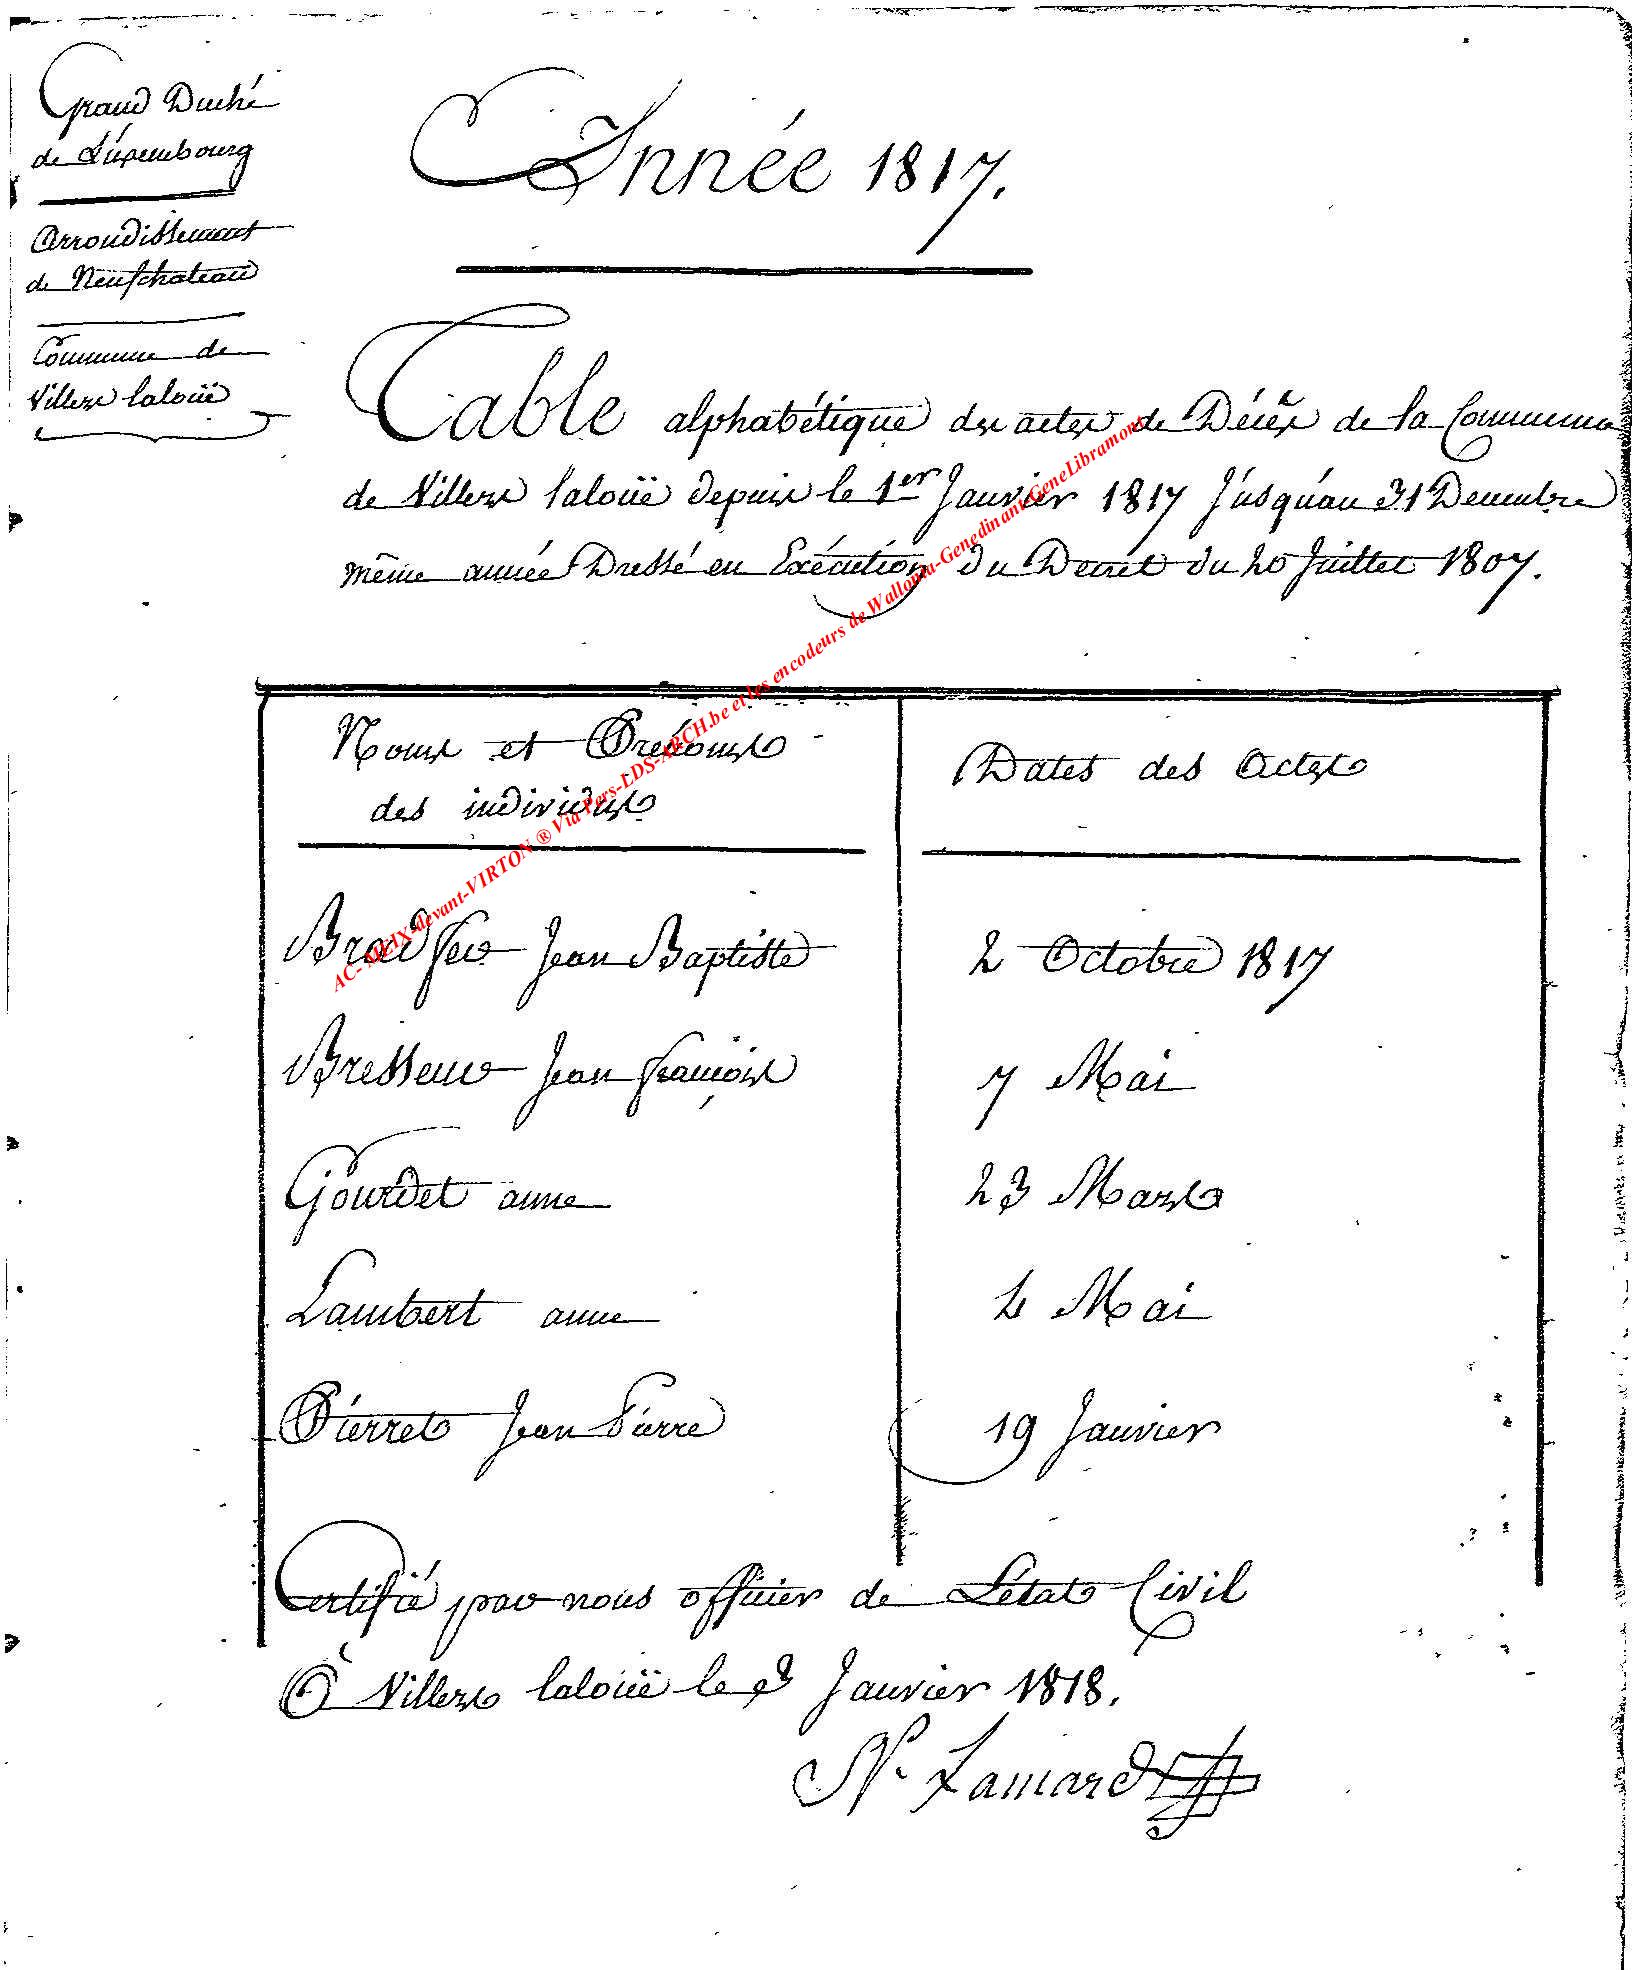 Grand Duché
de Luxembourg
Arrondissement
de Neufchateau
Commune de
Villers laloüe
Année 1817.
Table alphabétique des actes de Décès de la Commune
de Villers laloüe depuis le 1er Janvier 1817 Jusqu'au 31 Decembre
même année Dressé en Exécution du Decret du 20 Juillet 1807.
Noms et Prénoms
des individus
Dates des Actes
Bradfer Jean Baptiste 2 Octobre 1817
Bresseur Jean françois 7 Mai
Gourdet anne 23 Mars
Lambert anne 4 Mai
Pierret Jean Pierre 19 Janvier
Certifié par nous officier de L'état Civil
à Villers laloüe le Janvier 1818.
N. Lamard
AC-MEIX-devant-VIRTON ® Via Pers-LDS-ARCH.be et les encodeurs de Wallonia-Genedinant-GeneLibramont